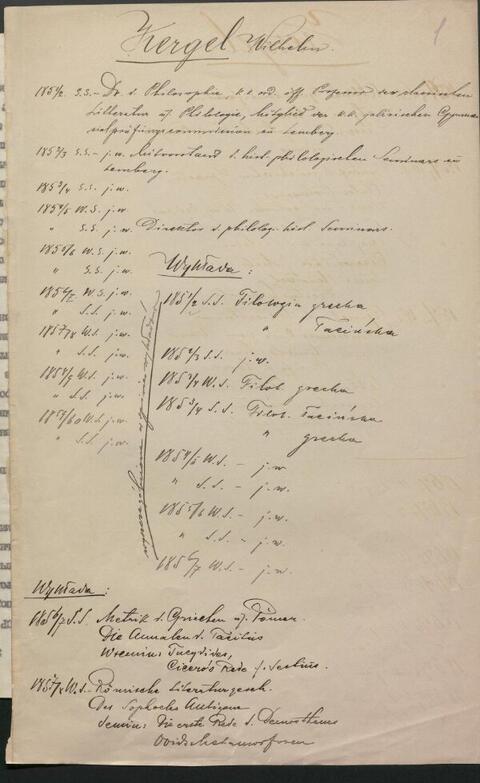 1
Kergel Wilhelm.
1851/2 S.S. – Dr. d. Philosophie, k.k. ord. öff. Professor der
Litteratur u. Philologie, Mitglied der k.k. galizischen Gymna
sialprüfungscommission zu Lemberg.
1852/3 S.S. – j.w. Mitvorstand d. hist. philologischen Seminars zu
Lemberg.
1853/4 S.S. j.w.
1854/5 W.S. j.w.
" S.S. j.w. Direktor d. philolog. hist. Seminars.
1855/6 W.S. j.w.
" S.S. j.w.
1856/7 W.S. j.w.
" S.S. j.w.
1857/8 W.S. j.w.
" S.S. j.w.
1858/9 W.S. j.w.
" S.S. j.w.
1859/60 W.S. j.w.
" S.S. j.w.
Wykłada:
1851/2 S.S. Filologia grecka
" łacińska
1852/3 S.S. j.w.
1853/4 W.S. Filol. grecka
1853/4 S.S. Filol. łacińska
" grecka
1854/5 W.S. – j.w.
" S.S. – j.w.
1855/6 W.S. – j.w.
" S.S. – j.w.
1856/7 W.S. – j.w.
Wykłada:
1856/7 S.S. Metrik d. Griechen u. Römer.
Die Annalen d. Tacitus
Tucydides,
Cicero's Rede f. Sestius.
1857/8 W.S. – Römische Literaturgesch.
Des Sophocles Antigone
Semin: Die erste Rede d. Demosthenes
Ovids Metamorfosen